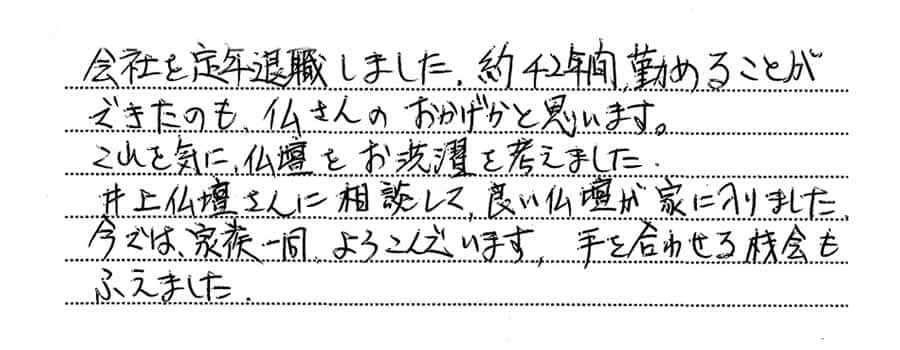 会社を定年退職しました。約42年間、勤めることが
できたのも、仏さんのおかげかと思います。
これを気に、仏壇をお洗濯を考えました。
井上仏壇さんに相談して、良い仏壇が家に入りました。
今では、家族一同、よろこんでいます。手を合わせる機会も
ふえました。